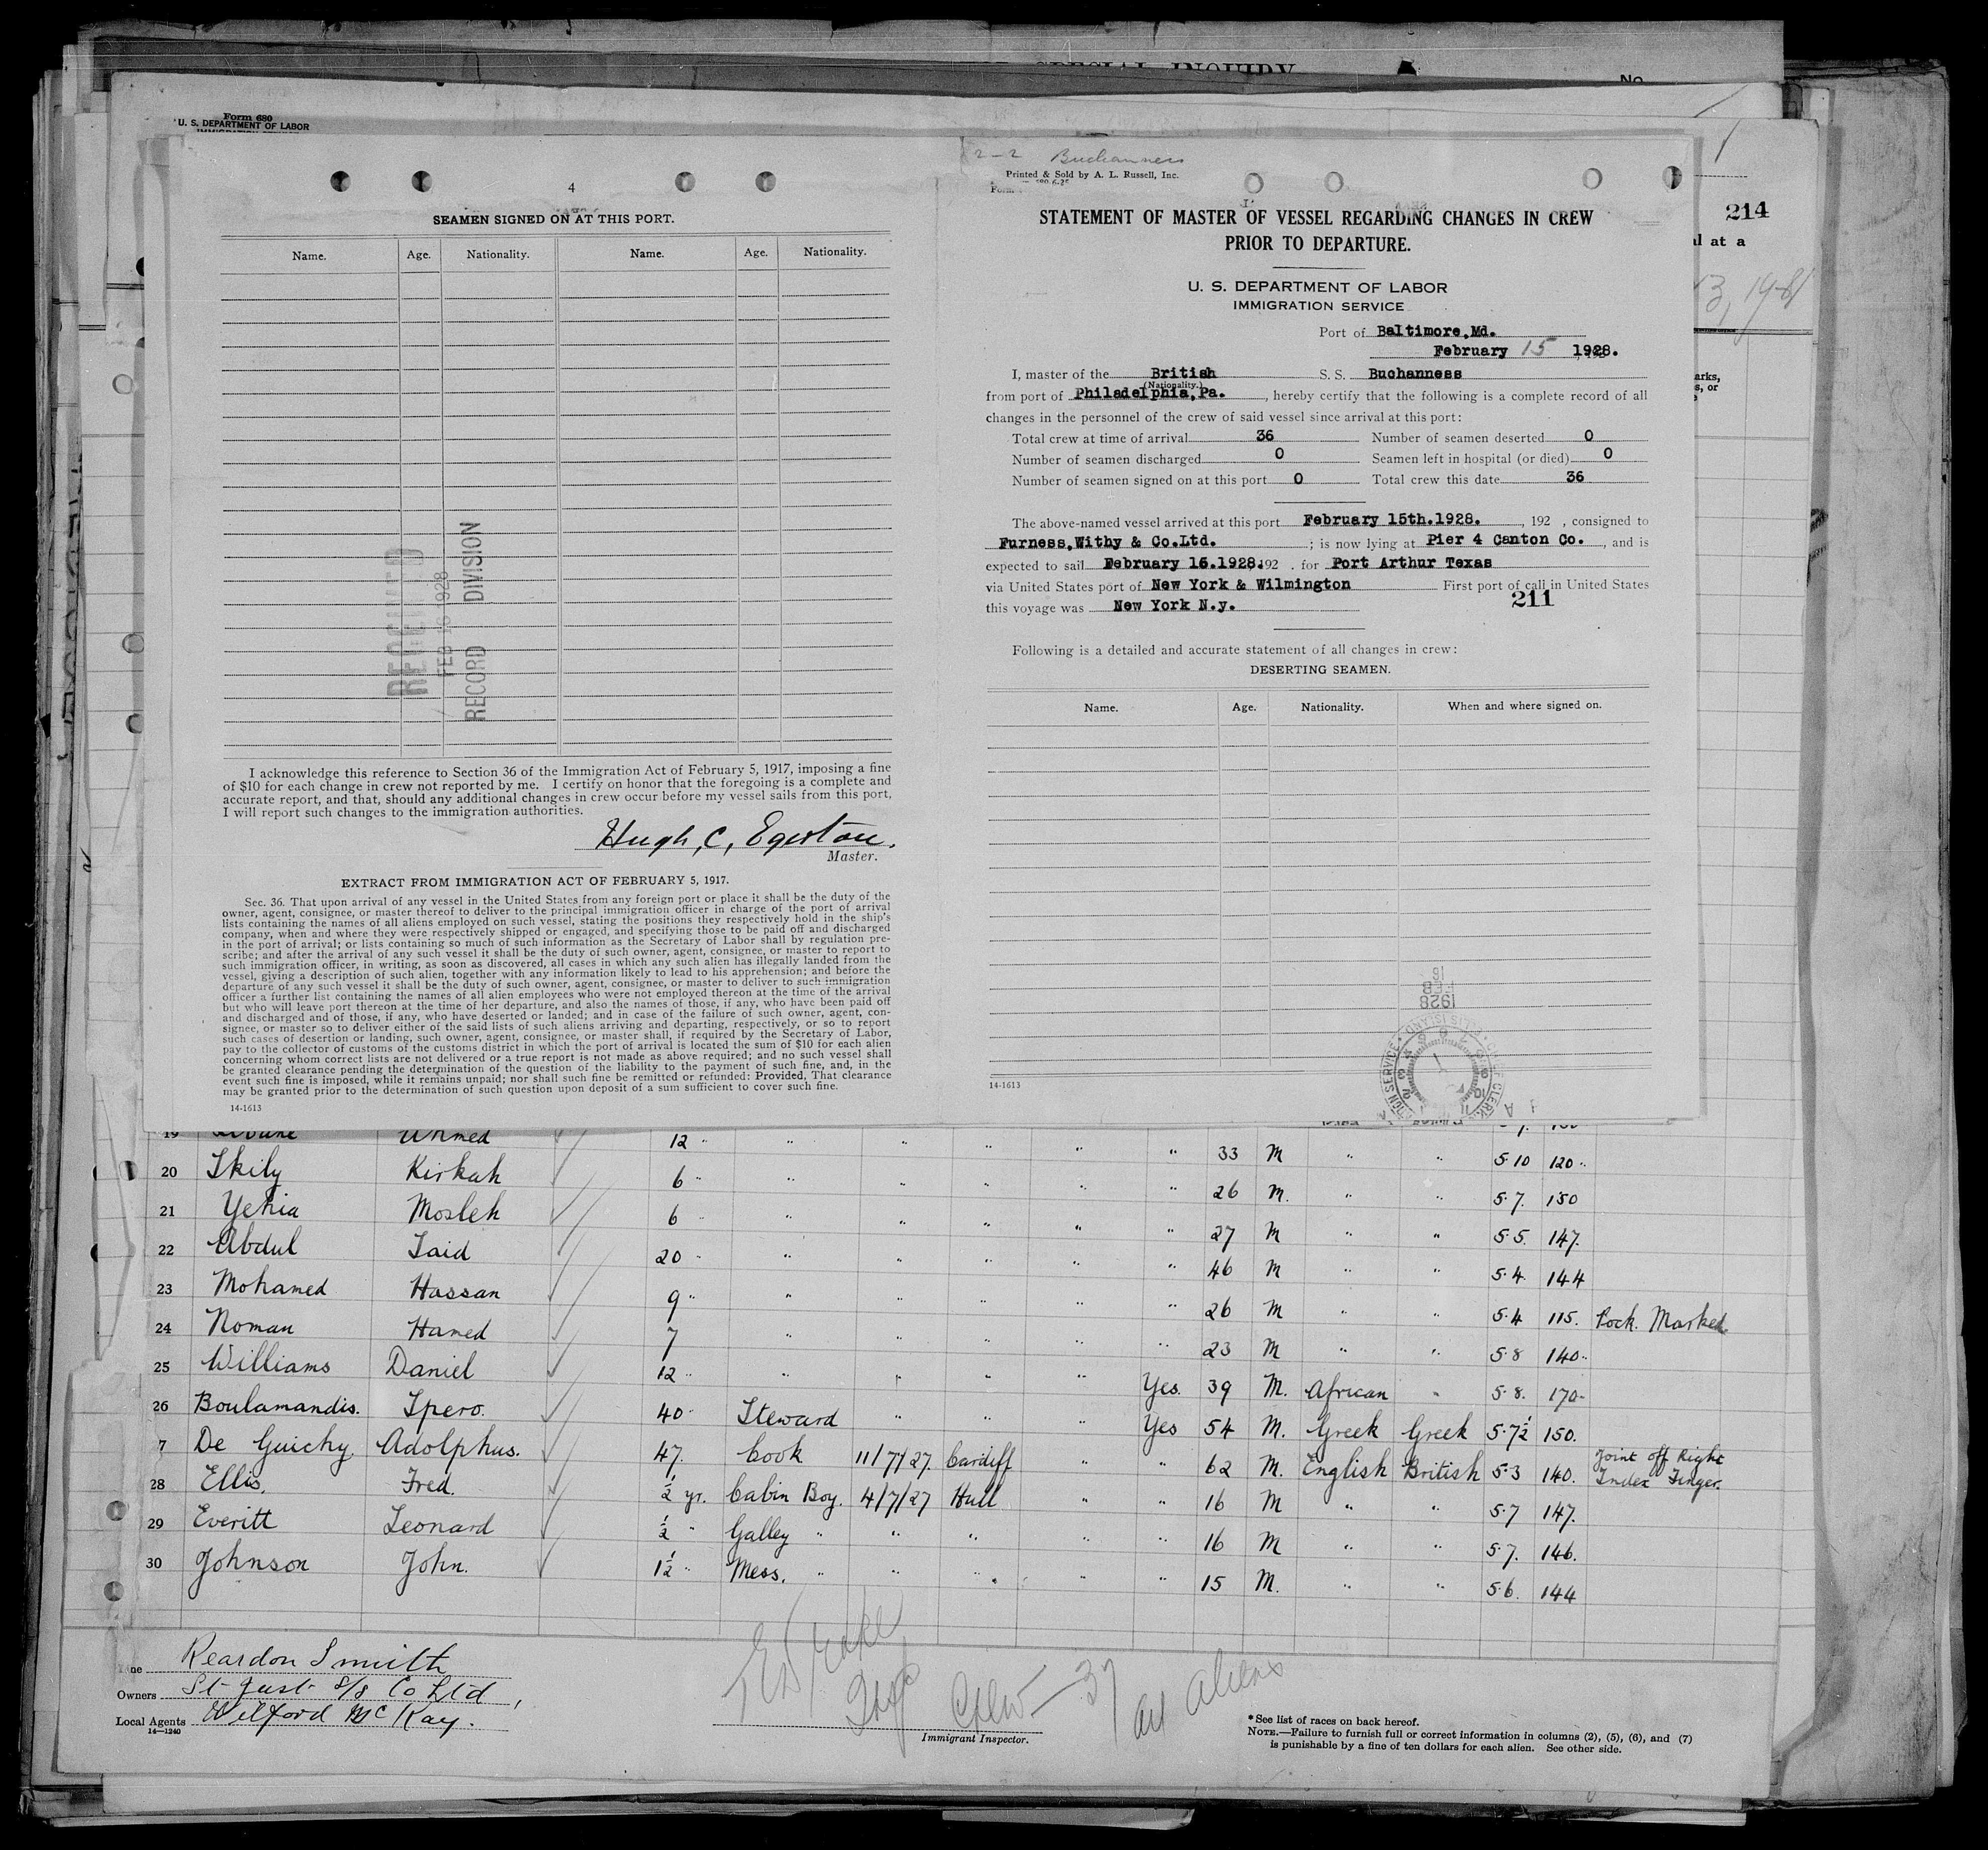 SPECIAL INQUIRY
No.
Form 680
U. S. DEPARTMENT OF LABOR
214
al at a
13, 19
arks,
s, or
4
SEAMEN SIGNED ON AT THIS PORT.
Name. Age. Nationality. Name. Age. Nationality.
RECEIVED
FEB 16 1928
RECORD DIVISION
I acknowledge this reference to Section 36 of the Immigration Act of February 5, 1917, imposing a fine
of $10 for each change in crew not reported by me. I certify on honor that the foregoing is a complete and
accurate report, and that, should any additional changes in crew occur before my vessel sails from this port,
I will report such changes to the immigration authorities.
Hugh, C, Egerton.
Master.
EXTRACT FROM IMMIGRATION ACT OF FEBRUARY 5, 1917.
Sec. 36. That upon arrival of any vessel in the United States from any foreign port or place it shall be the duty of the
owner, agent, consignee, or master thereof to deliver to the principal immigration officer in charge of the port of arrival
lists containing the names of all aliens employed on such vessel, stating the positions they respectively hold in the ship's
company, when and where they were respectively shipped or engaged, and specifying those to be paid off and discharged
in the port of arrival; or lists containing so much of such information as the Secretary of Labor shall by regulation pre-
scribe; and after the arrival of any such vessel it shall be the duty of such owner, agent, consignee, or master to report to
such immigration officer, in writing, as soon as discovered, all cases in which any such alien has illegally landed from the
vessel, giving a description of such alien, together with any information likely to lead to his apprehension; and before the
departure of any such vessel it shall be the duty of such owner, agent, consignee, or master to deliver to such immigration
officer a further list containing the names of all alien employees who were not employed thereon at the time of the arrival
but who will leave port thereon at the time of her departure, and also the names of those, if any, who have been paid off
and discharged and of those, if any, who have deserted or landed; and in case of the failure of such owner, agent, con-
signee, or master so to deliver either of the said lists of such aliens arriving and departing, respectively, or so to report
such cases of desertion or landing, such owner, agent, consignee, or master shall, if required by the Secretary of Labor,
pay to the collector of customs of the customs district in which the port of arrival is located the sum of $10 for each alien
concerning whom correct lists are not delivered or a true report is not made as above required; and no such vessel shall
be granted clearance pending the determination of the question of the liability to the payment of such fine, and, in the
event such fine is imposed, while it remains unpaid; nor shall such fine be remitted or refunded: Provided, That clearance
may be granted prior to the determination of such question upon deposit of a sum sufficient to cover such fine.
14-1613
2-2 Buchanness
Printed & Sold by A. L. Russell, Inc.
STATEMENT OF MASTER OF VESSEL REGARDING CHANGES IN CREW
PRIOR TO DEPARTURE.
U. S. DEPARTMENT OF LABOR
IMMIGRATION SERVICE
Port of Baltimore,Md.
February 15 1928.
I, master of the British S. S. Buchanness
(Nationality.)
from port of Philadelphia,Pa. , hereby certify that the following is a complete record of all
changes in the personnel of the crew of said vessel since arrival at this port:
Total crew at time of arrival 36 Number of seamen deserted 0
Number of seamen discharged 0 Seamen left in hospital (or died) 0
Number of seamen signed on at this port 0 Total crew this date 36
The above-named vessel arrived at this port February 15th.1928. , 192 , consigned to
Furness,Withy & Co.Ltd. ; is now lying at Pier 4 Canton Co. , and is
expected to sail February 16.1928. 192 . for Port Arthur Texas
via United States port of New York & Wilmington First port of call in United States
211
this voyage was New York N.y.
Following is a detailed and accurate statement of all changes in crew:
DESERTING SEAMEN.
Name. Age. Nationality. When and where signed on.
16
FEB
1928
14-1613
19 Ahmed 12 " " " " " " 33 M " " 5·10 120 "
20 Skily Kirkah 6 " " " " " " 26 M. " " 5·7. 150
21 Yehia Mosleh 6 " " " " " " 27 M " " 5·5. 147.
22 Abdul Said 20 " " " " " " 46 M " " 5·4. 144
23 Mohamed Hassan 9 " " " " " " 26 M " " 5·4 115. Pock. Marked.
24 Noman Hamed 7 " " " " " 23 M " " 5·8 140 "
25 Williams Daniel 12 " " " " " Yes. 39 M. African " 5·8. 170
26 Boulamandis. Spero. 40 " Steward " " " Yes 54 M. Greek Greek 5·7½ 150.
7 De Guichy Adolphus. 47. Cook 11/7/27. Cardiff " " 62 M. English British 5·3 140. Joint off Right
Index Finger.
28 Ellis, Fred. ½ yr. Cabin Boy. 4/7/27 Hull " " 16 M " " 5·7 147.
29 Everitt Leonard ½ " Galley " " " " " 16 M " " 5·7. 146.
30 Johnson John. 1½ " Mess. " " " " " 15 M. " " 5·6. 144
Line Reardon Smith
Owners St Just S/S Co Ltd,
Local Agents Wilford McKay.
14—1240
Insp Crew — 37 all aliens
Immigrant Inspector.
* See list of races on back hereof.
NOTE.—Failure to furnish full or correct information in columns (2), (5), (6), and (7)
is punishable by a fine of ten dollars for each alien. See other side.